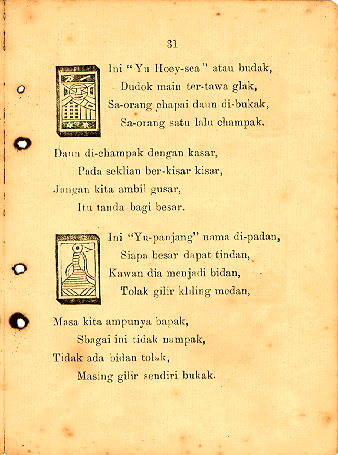 31
Ini "Yu Hoey-sea" atau budak,
Dudok main ter-tawa glak,
Sa-orang chapai daun di-bukak,
Sa-orang satu lalu champak.
Daun di-champak dengan kasar,
Pada seklian ber-kisar kisar,
Jangan kita ambil gusar,
Itu tanda bagi besar.
Ini "Yu-panjang" nama di-padan,
Siapa besar dapat tindan,
Kawan dia menjadi bidan,
Tolak gilir kliling medan,
Masa kita ampunya bapak,
Sbagai ini tidak nampak,
Tidak ada bidan tolak,
Masing gilir sendiri bukak.